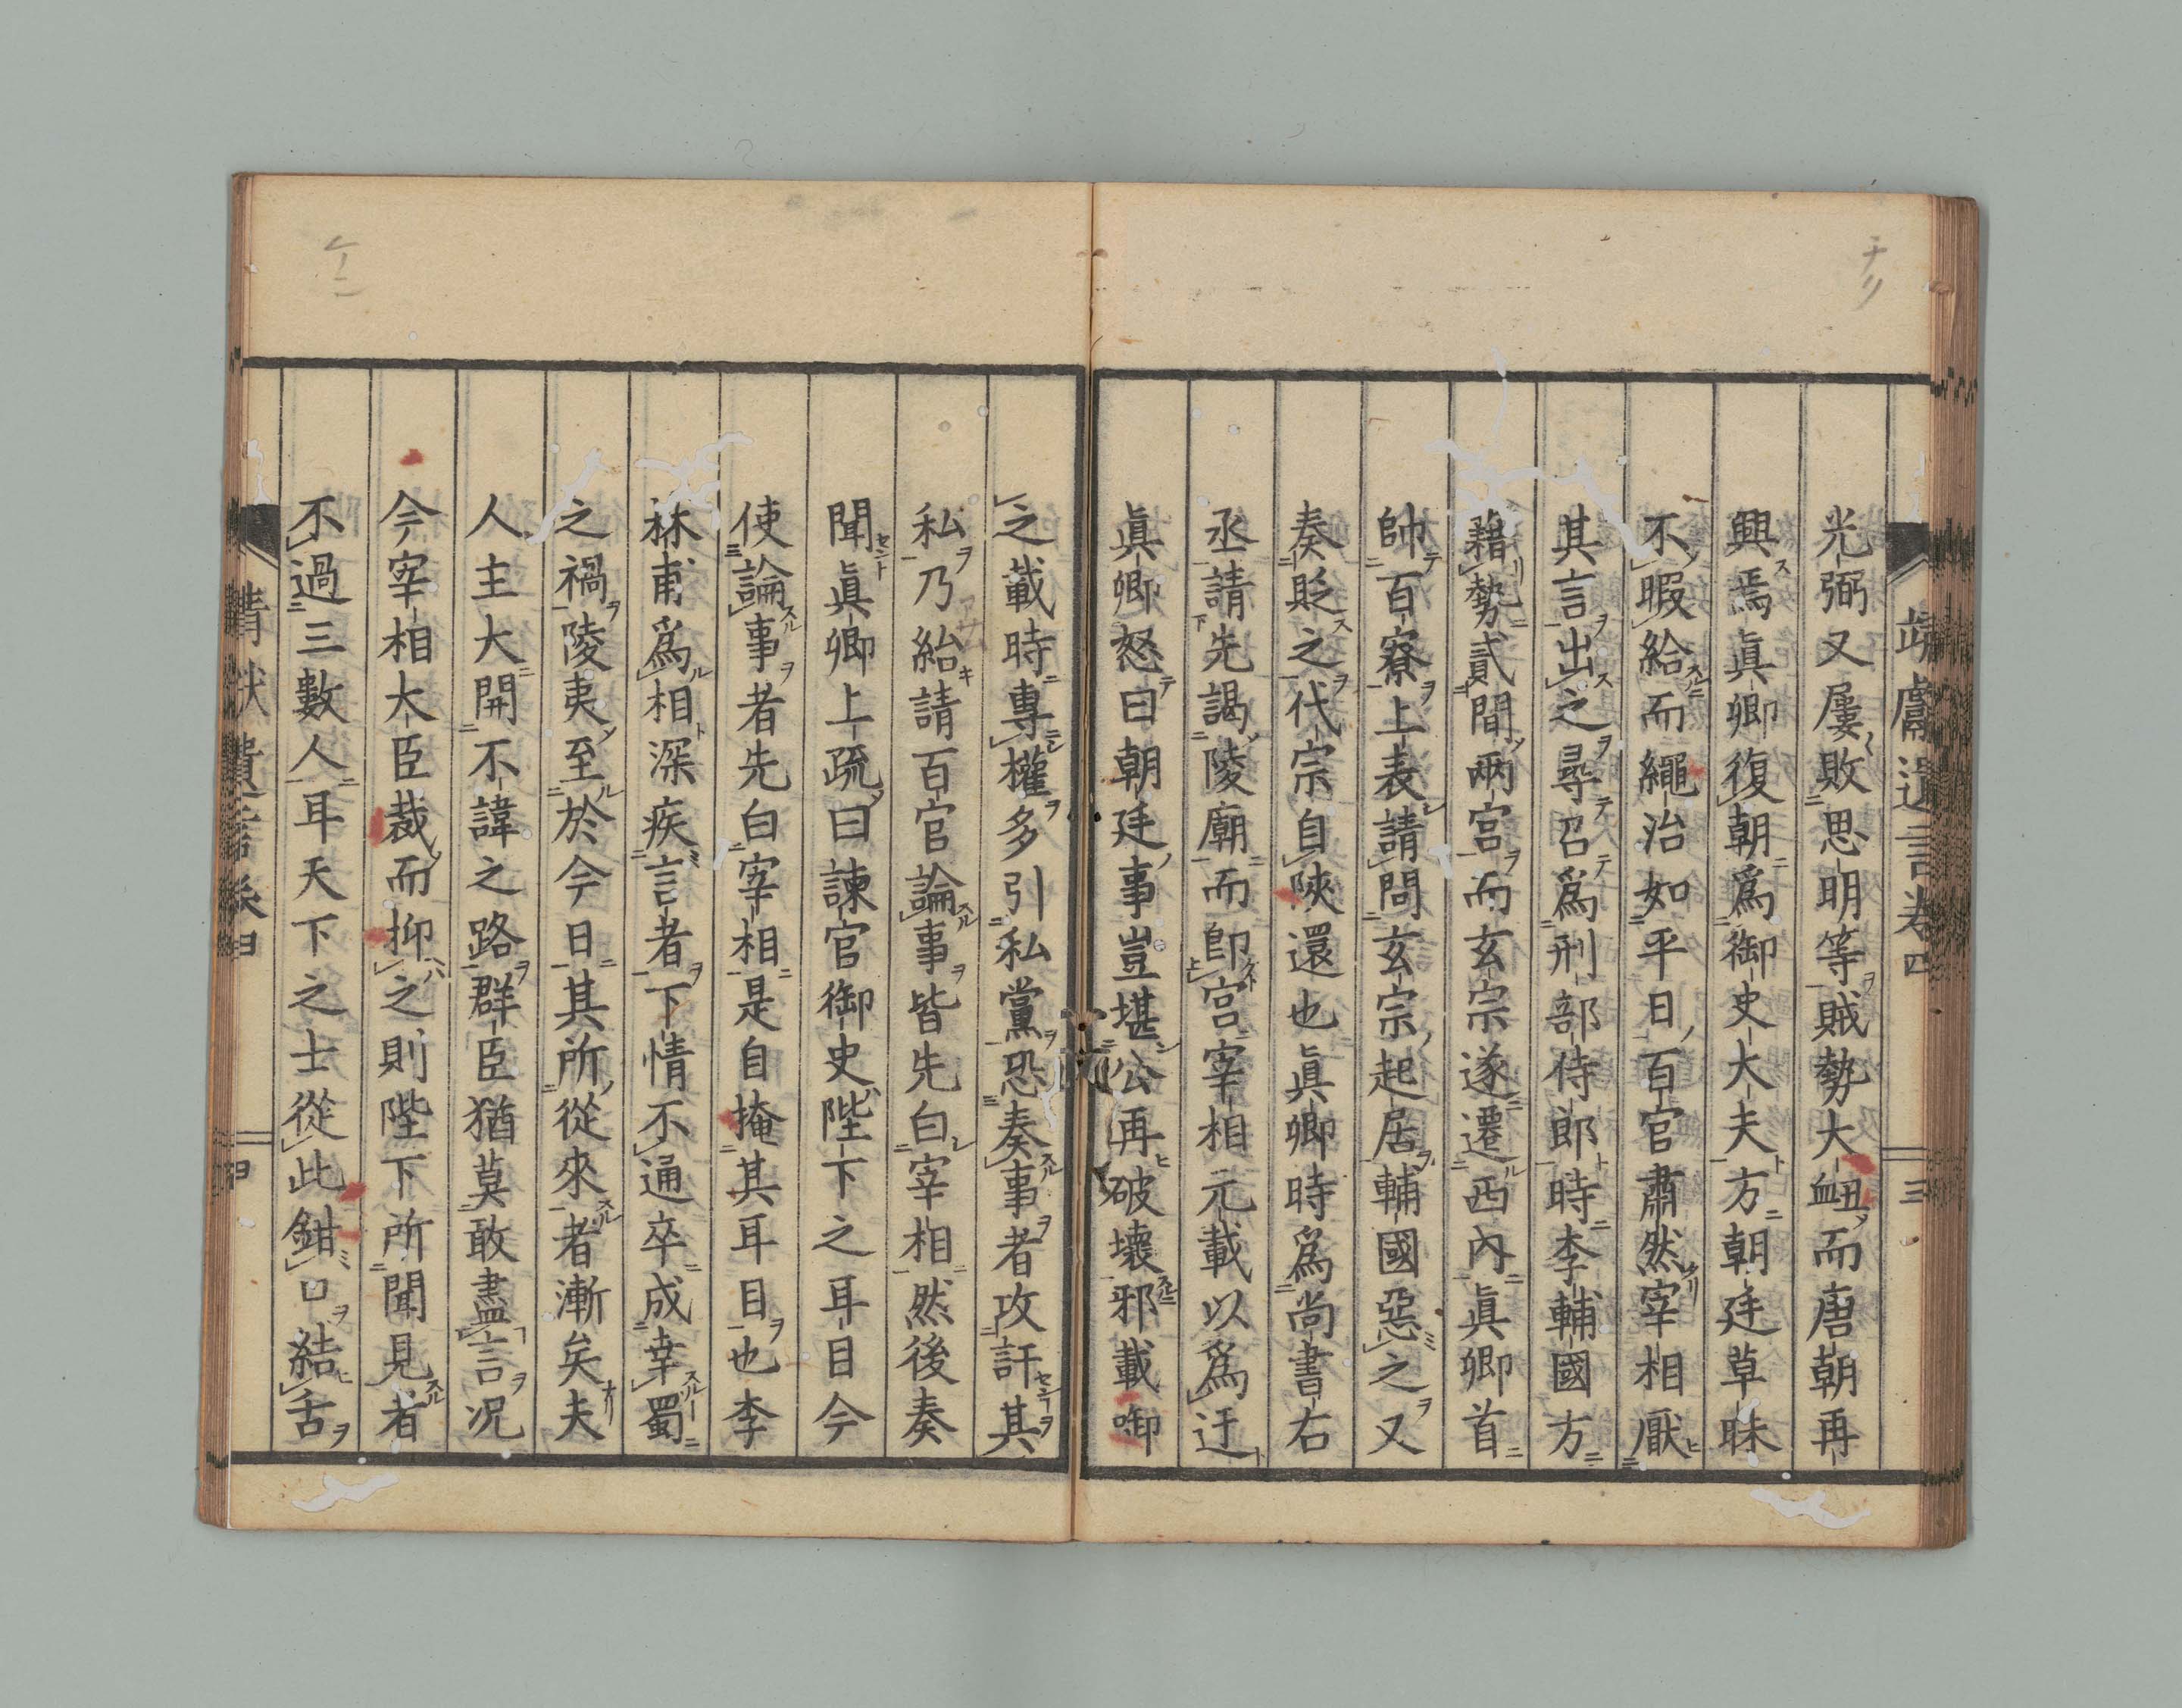 靖獻遺言卷四
三
光弼又屢敗思明等賊勢大衄而唐朝再
興焉眞卿復朝爲御史大夫方朝廷草昧
不暇給而繩治如平日百官肅然宰相厭
其言出之尋召爲刑部侍郎時李輔國方
藉勢貳間兩宮而玄宗遂遷西內眞卿首
帥百寮上表請問玄宗起居輔國惡之又
奏貶之代宗自陝還也眞卿時爲尚書右
丞請先謁陵廟而卽宮宰相元載以爲迂
眞卿怒曰朝廷事豈堪公再破壞邪載啣
之載時專權多引私黨恐奏事者攻訐其
私乃紿請百官論事皆先白宰相然後奏
聞眞卿上疏曰諫官御史陛下之耳目今
使論事者先白宰相是自掩其耳目也李
林甫爲相深疾言者下情不通卒成幸蜀
之禍陵夷至於今日其所從來者漸矣夫
人主大開不諱之路群臣猶莫敢盡言况
今宰相大臣裁而抑之則陛下所聞見者
不過三數人耳天下之士從此鉗口結舌